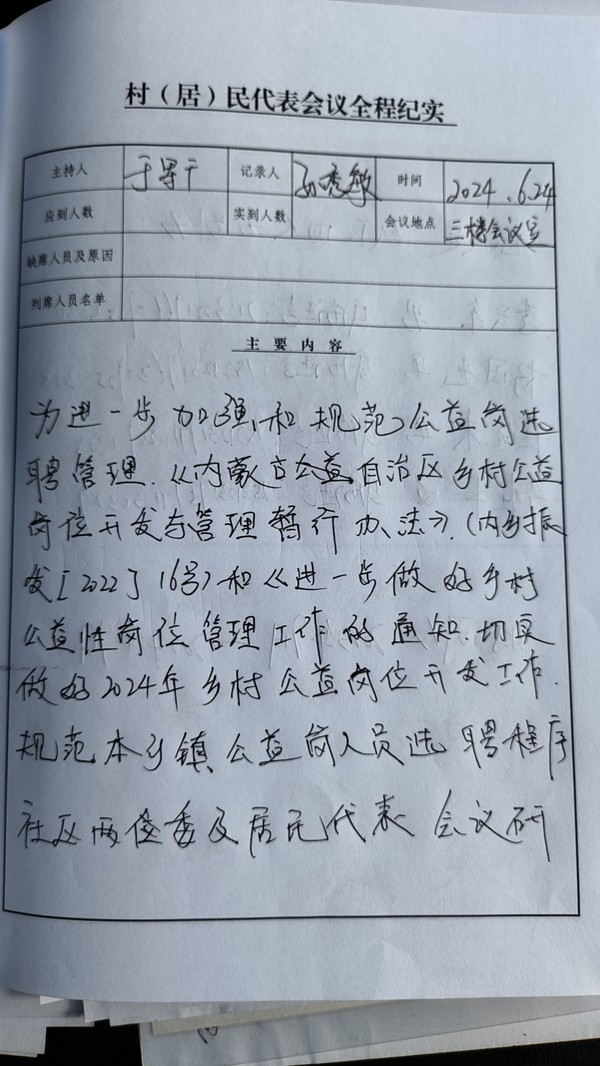 村（居）民代表会议全程纪实
主持人 于 记录人 孙秀敏 时间 2024.6.24
应到人数 实到人数 会议地点 三楼会议室
缺席人员及原因
列席人员名单
主要内容
为进一步加强和规范公益岗选
聘管理.《内蒙古公益自治区乡村公益
岗位开发与管理暂行办法》.(内乡振
发[2022]16号)和《进一步做好乡村
公益性岗位管理工作的通知.切实
做好2024年乡村公益岗位开发工作.
规范本乡镇公益岗人员选聘程序
社区两位委及居民代表会议研